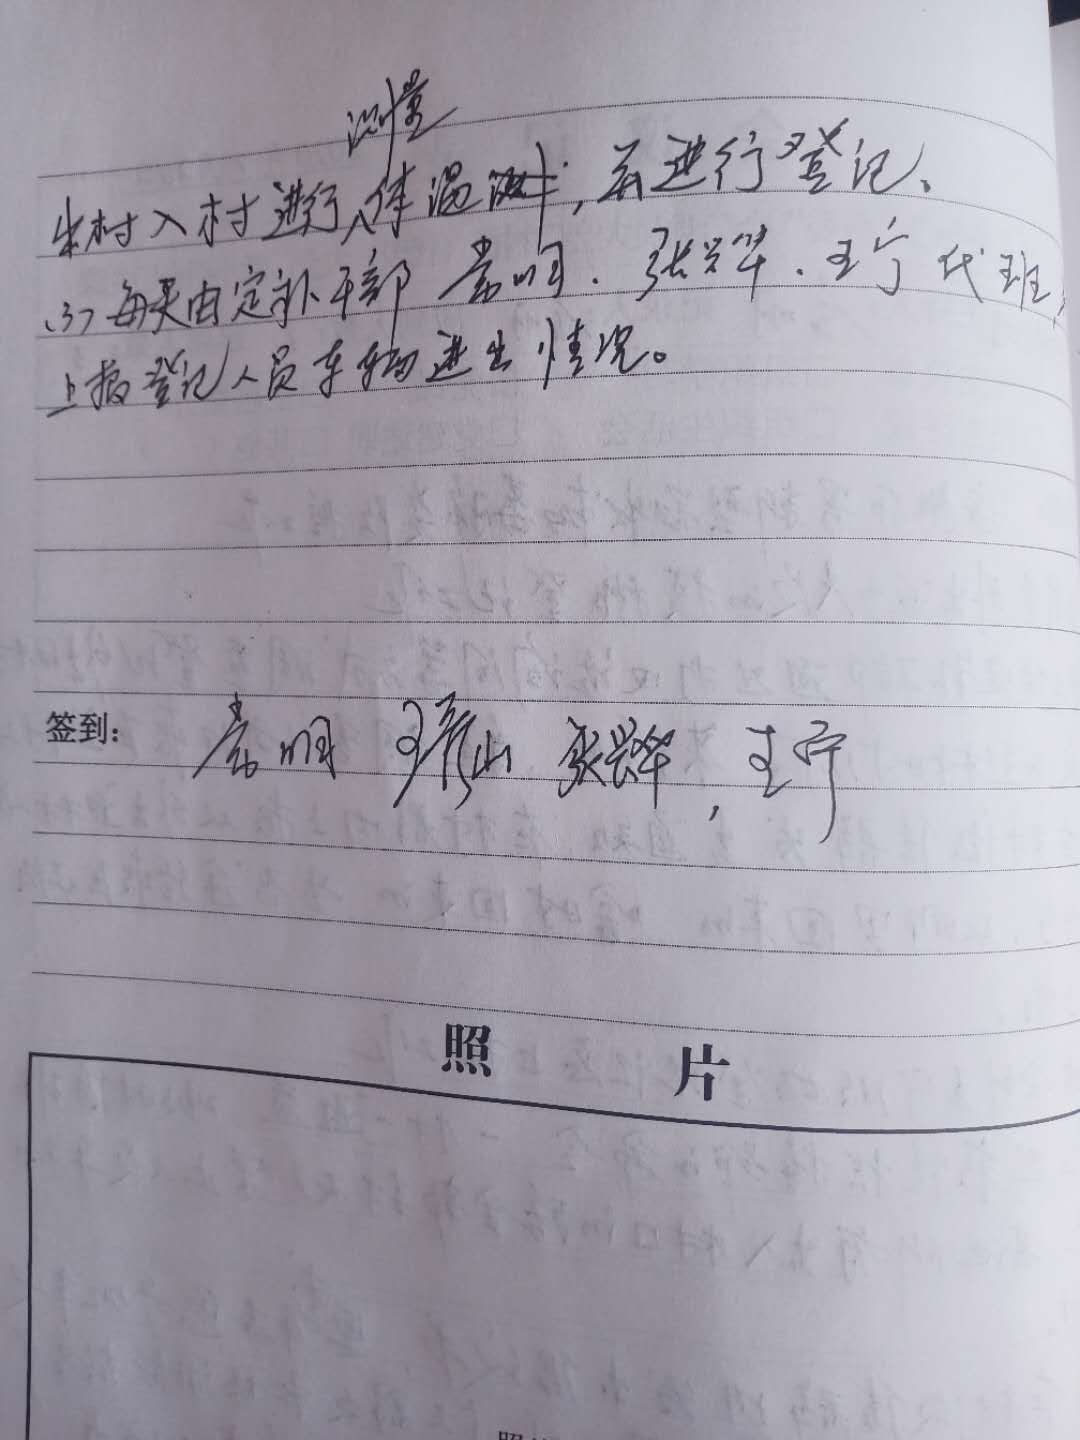 测量
出村入村进行体温测, 并进行登记、
(3)每天由定补干部 常明、张兴华、王宁代班,
上报登记人员车辆进出情况。
签到: 常明 王彦山 张兴华, 王宁
照 片